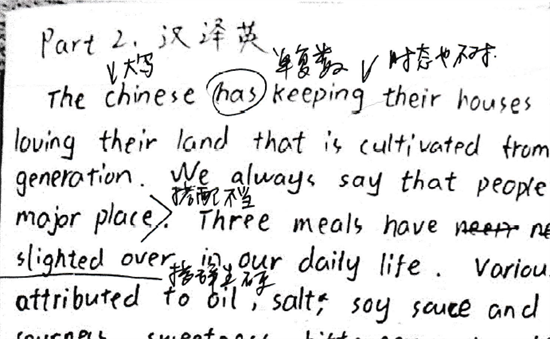 Part 2. 汉译英
大写 单复数 时态也不对.
The chinese has keeping their houses
loving their land that is cultivated from
generation. We always say that people
搭配不当
major place. Three meals have
slighted over in our daily life. Variou
措辞生硬
attributed to oil, salt, soy sauce and
sourness, sweetness,